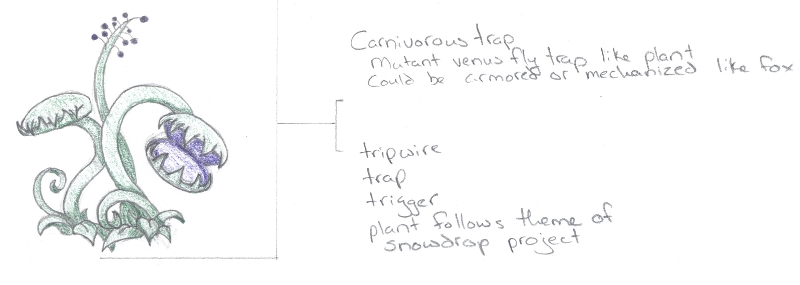 Carnivorous trap
Mutant venus fly trap like plant
Could be armored or mechanized like fox
tripwire
trap
trigger
plant follows theme of
snowdrop project